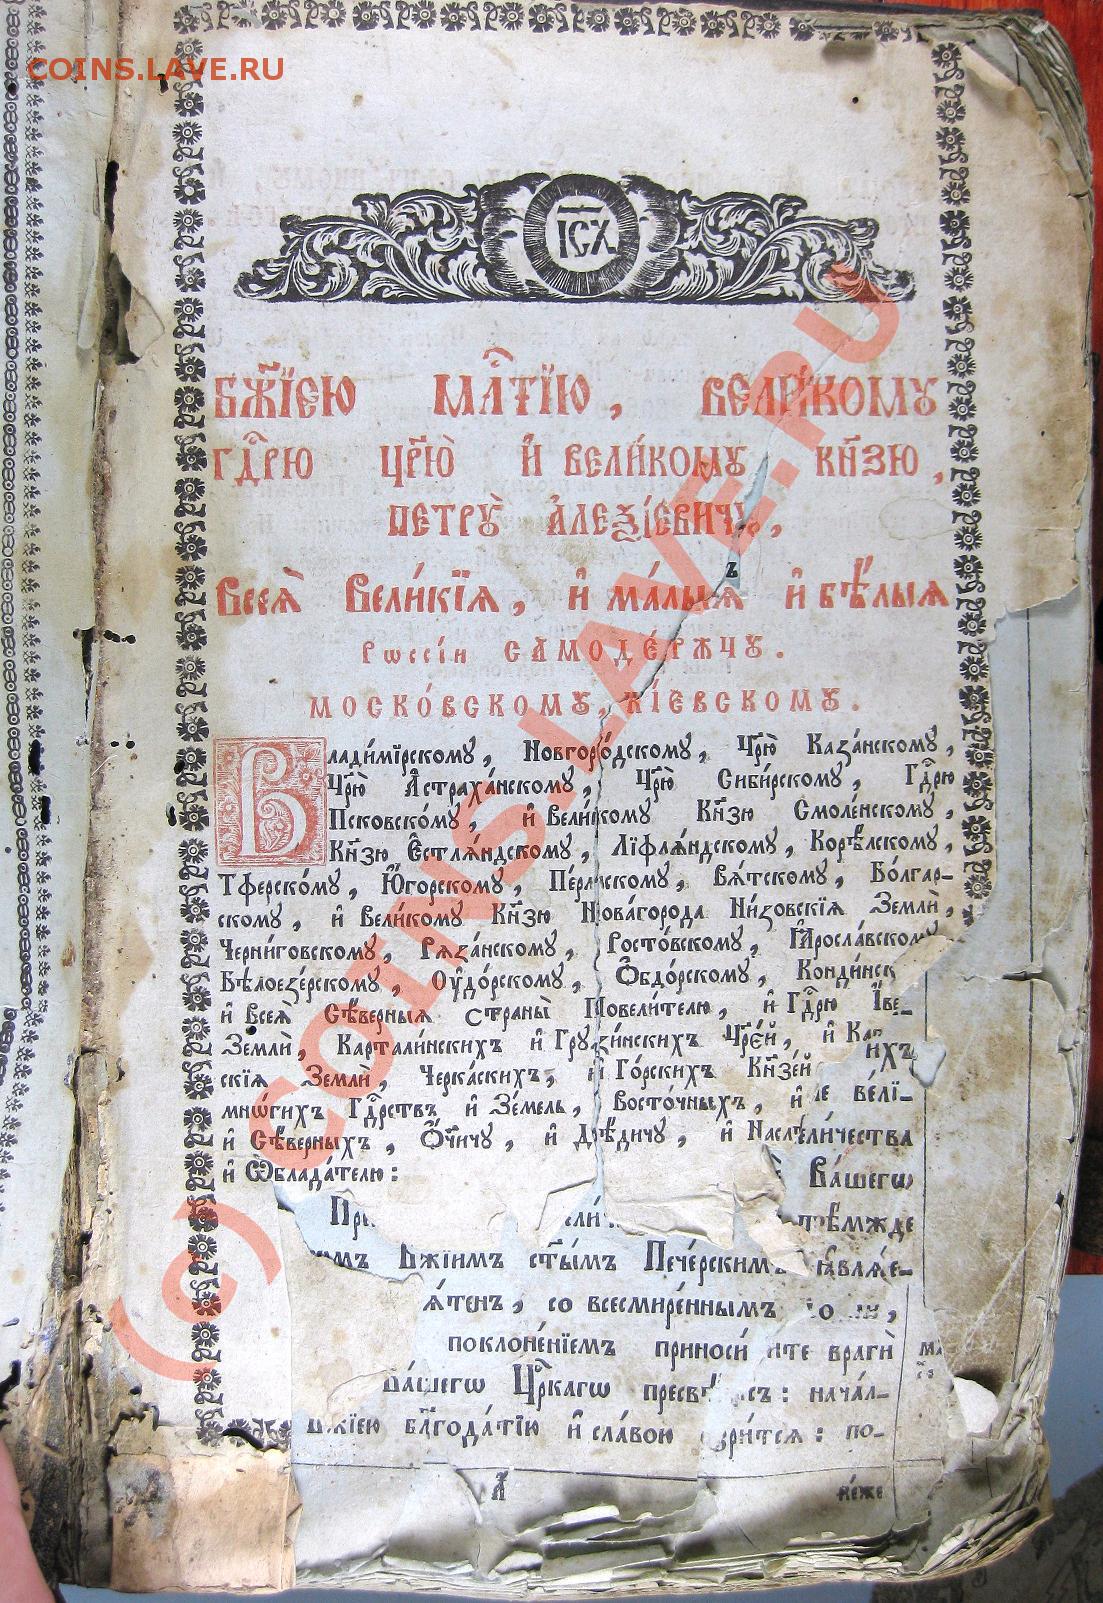 COINS.LAVE.RU
ІСХ
БЖ҃ІЕЮ МЛ҃ТІЮ, ВЕЛИКОМУ
ГД҃РЮ ЦР҃Ю И҆ ВЕЛИ́КОМꙊ КН҃ЗЮ,
ПЕТРꙊ̀ А҆ЛЕѮІ́ЕВИЧꙊ,
Всеѧ̀ Вели́кїѧ, и҆ ма́лыѧ и҆ бѣ́лыѧ
Рѡссі́и САМОДЕ́РЖЧꙊ.
МОСКО́ВСКОМꙊ, КІ́ЕВСКОМꙊ.
Влади́мїрскомꙋ, Новгоро́дскомꙋ, Цр҃ю̀ Каза́нскомꙋ,
Цр҃ю̀ А҆страха́нскомꙋ, Цр҃ю̀ Сиби́рскомꙋ, Гд҃рю
Псковско́мꙋ, и҆ Вели́комꙋ Кн҃зю Смоле́нскомꙋ,
Кн҃зю Е҆стлѧ́ндскомꙋ, Лїфлѧ́ндскомꙋ, Корѣ́лскомꙋ,
Тферско́мꙋ, Ю҆́горскомꙋ, Пе́рмскомꙋ, Вѧ́тскомꙋ, Бо́лгар-
скомꙋ, и҆ Вели́комꙋ Кн҃зю Нова́города Ни́зовскїѧ Землѝ,
Черни́говскомꙋ, Рѧза́нскомꙋ, Росто́вскомꙋ, Ꙗ҆росла́вскомꙋ
Бѣлоезе́рскомꙋ, Оу҆до́рскомꙋ, Ѻ҆бдо́рскомꙋ, Конди́нск
и҆ Всеѧ̀ Сѣ́верныѧ страны̀ Повели́телю, и҆ Гд҃рю І҆́ве-
Землѝ, Картали́нскихъ и҆ Грꙋзи́нскихъ Цр҃е́й, и҆ Ка
скїѧ Землѝ, Черка́скихъ, и҆ Го́рскихъ Кн҃зе́й ихъ
мно́гихъ Гд҃рствъ и҆ Земе́ль, Восто́чныхъ, и҆ е вели-
и҆ Сѣ́верныхъ, Ѻ҆́тчичꙋ, и҆ Дѣ́дичꙋ, и҆ Наслѣ ли́чества
и҆ Ѡ҆блада́телю: Ва́шегѡ
Пре ели прѣ́мжде
омъ Бж҃іимъ ст҃ы́мъ Пече́рскимъ ꙗвлѧ́е-
ѧтенъ, со всесмире́ннымъ ,
поклоне́нїемъ приноси́ ите врагѝ
Ва́шегѡ Цр҃каго пресвѣ съ: нача́л-
Бж҃їею блг҃ода́тїю и҆ сла́вою ꙋзри́тсѧ: по-
не́же
(c) COINS.LAVE.RU